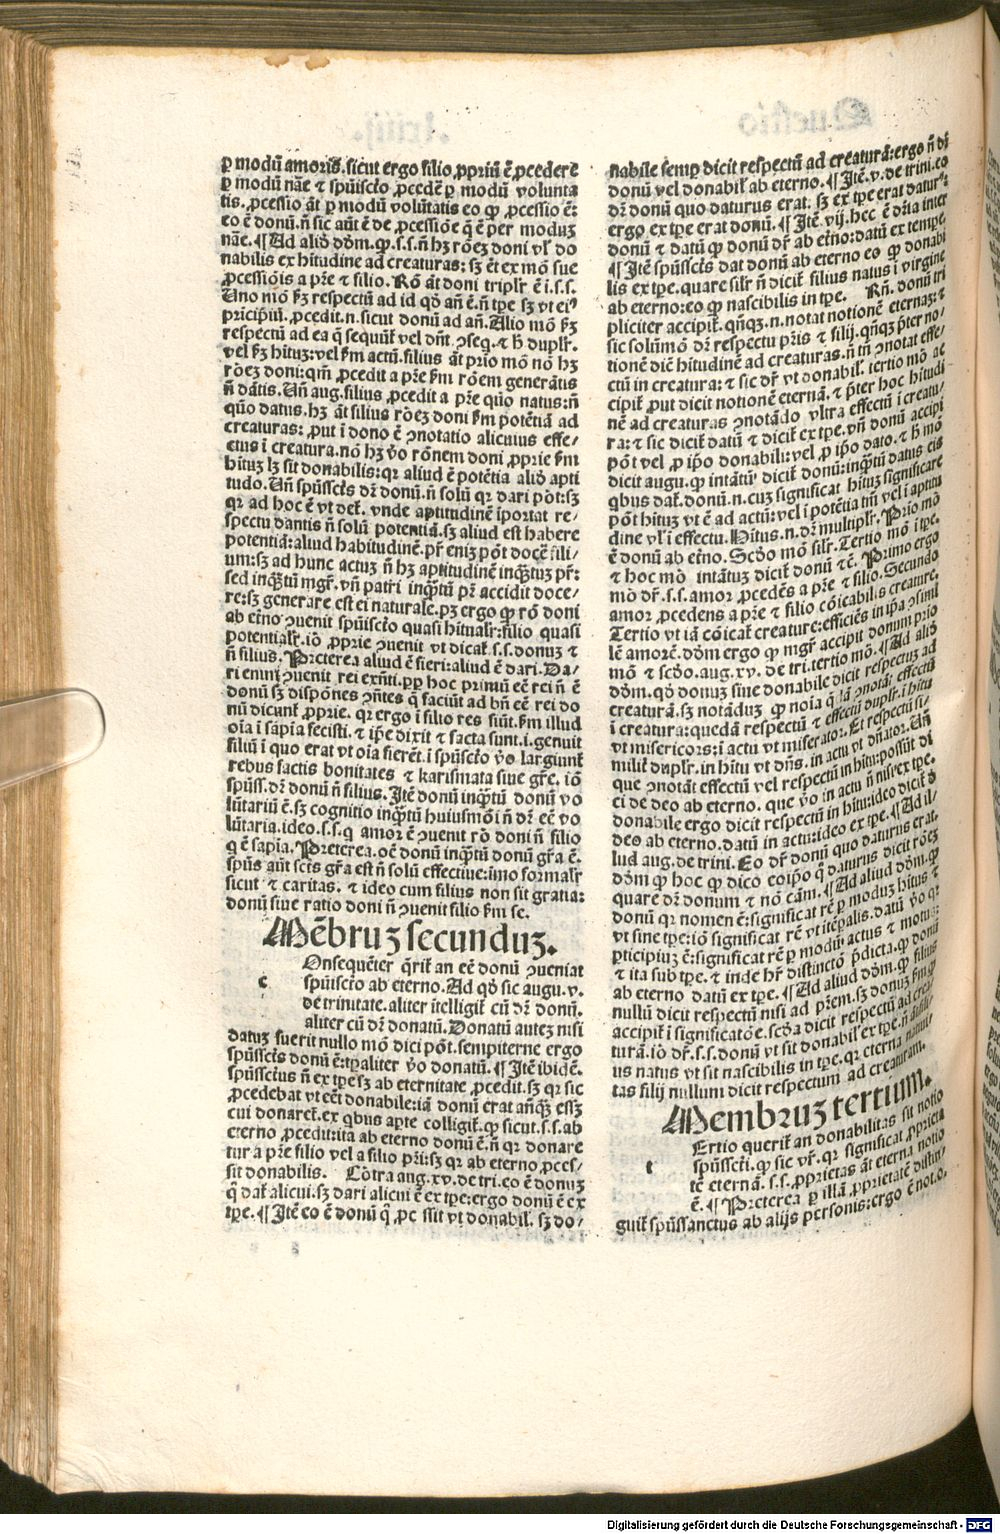 ꝑ modū amoris.sicut ergo filio ꝓpriū ē ꝓcedere
ꝑ modū nāe ⁊ spūiscto ꝓcedē ꝑ modū volunta
tis.ꝓcessio āt ꝑ modū volūtatis eo ꝙ ꝓcessio ē:
eo ē donū.ñ sic aūt ē de ꝓcessiōe q̄ ē per moduꝫ
nāe.¶Ad aliō dōm.ꝙ.s.s.ñ hꝫ rōeꝫ doni vl̓ do
nabilis ex hītudine ad creaturas: sꝫ ēt ex mō sue
ꝓcessiōis a pr̄e ⁊ filio. Rō āt doni triplr̄ ē i.s.s.
Uno mō ẜꝫ respectū ad id qō añ ē.ñ tꝑe sꝫ vt ei⁹
pricipiū.ꝓcedit.n.sicut donū ad añ.Alio mō ẜꝫ
respectū ad ea q̄ sequūt̄ vel dñt ꝯseq.⁊ ħ duplr̄.
vel ẜꝫ hituꝫ:vel ẜm actū.filius āt prio mō nō hꝫ
rōeꝫ doni:qm̄ ꝓcedit a pr̄e ẜm rōem generātis
ñ dātis.Uñ aug.filius ꝓcedit a pr̄e quo natus:ñ
quō datus.hꝫ āt filius rōeꝫ doni ẜm potētiā ad
creaturas: ꝓut ī dono ē ꝯnotatio alicuius effe/
ctus ī creatura.nō hꝫ v̄o rōnem doni ꝓprie ẜm
hituꝫ lꝫ sit donabilis:qꝛ aliud ē potētia aliō apti
tudo.Uñ spūsscts dr̄ donū.ñ solū qꝛ dari pōt:sꝫ
qꝛ ad hoc ē vt det̄. vnde aptitudinē īportat re/
spectu dantis ñ solū potentiā.sꝫ aliud est habere
potentiā:aliud habitudinē.pr̄ eniꝫ pōt docē fili/
um:sꝫ ad hunc actuꝫ ñ hꝫ aptitudinē inq̄ꝫtuꝫ pr̄:
sed inq̄ꝫtū mgr̄.vñ patri inq̄ꝫtū pr̄ accidit doce/
re:sꝫ generare est ei naturale.pꝫ ergo ꝙ rō doni
ab et̄no ꝯuenit spūiscto quasi hitualr̄:filio quasi
potentialr̄.iō ꝓprie ꝯuenit vt dicat̄.s.s.donuꝫ ⁊
ñ filius.Preterea aliud ē fieri:aliud ē dari.Da/
ri enim ꝯuenit rei exñti.ꝓꝑ hoc primū eē rei ñ ē
donū sꝫ dispōnes ꝯñtes q̄ faciūt ad bñ eē rei do
nū dicunt̄ ꝓprie. qꝛ ergo ī filio res siūt.ẜm illud
oīa ī sapīa fecisti.⁊ ip̄e dixit ⁊ facta sunt.i.genuit
filiū ī quo erat vt oīa fierēt.ī spūiscto v̄o largiunt̄
rebus factis bonitates ⁊ karismata siue gr̄e. iō
spūss.dr̄ donū ñ filius.Itē donū inq̄ꝫtū donū vo
lūtariū ē.sꝫ cognitio inq̄ꝫtū huiusmōi ñ dr̄ eē vo
lūtaria.ideo.s.s.q amor ē ꝯuenit rō doni ñ filio
q ē sapīa.Preterea.oē donū inq̄ꝫtū donū gr̄a ē.
spūs aūt scts gr̄a est ñ solū effectiue:īmo formalr̄
sicut ⁊ caritas. ⁊ ideo cum filius non sit gratia:
donū siue ratio doni ñ ꝯuenit filio ẜm se.
Mēbruꝫ secunduꝫ.
Onsequēter q̄rit̄ an eē donū ꝯueniat
c spūiscto ab eterno.Ad qō sic augu.v.
de trinitate.aliter itelligit̄ cū dr̄ donū.
aliter cū dr̄ donatū.Donatū auteꝫ nisi
datuꝫ fuerit nullo mō dici pōt.sempiterne ergo
spūsscts donū ē:tꝑaliter v̄o donatū.¶Itē ibidē.
spūssctus ñ ex tꝑe sꝫ ab eternitate ꝓcedit.sꝫ qꝛ sic
ꝓcedebat vt eēt donabile:iā donū erat añq̄ꝫ essꝫ
cui donaret̄.ex qbus aꝑte colligit̄.ꝙ sicut.s.s.ab
eterno ꝓcedit:ita ab eterno donū ē.ñ qꝛ donare
tur a pr̄e filio vel a filio pr̄i:sꝫ qꝛ ab eterno ꝓces/
sit donabilis. Cōtra aug.xv.de tri.eo ē donuꝫ
q̄ dat̄ alicui.sꝫ dari alicui ē ex tꝑe:ergo donū ē ex
tꝑe.¶Itē eo ē donū q̄ ꝓce ssit vt donabil̓. sꝫ do/
nabile semꝑ dicit respectū ad creaturā:ergo ñ dr̄
donū vel donabil̓ ab eterno.¶Itē.v.de trini.eo
dr̄ donū quo daturus erat: sꝫ ex tꝑe erat datur⁹:
ergo ex tꝑe erat donū.¶Itē.vij.hec ē dr̄ia inter
donū ⁊ datū ꝙ donū dr̄ ab et̄no:datū ex tempe.
¶Itē spūsscts dat donū ab eterno eo ꝙ donabi
lis ex tꝑe.quare silr̄ ñ dicit̄ filius natus ī virgine
ab eterno:eo ꝙ nascibilis in tꝑe. Rñ. donū tri
pliciter accipit̄.qñqꝫ.n.notat notionē eternaꝫ:⁊
sic solūmō dr̄ respectu pr̄is ⁊ filij.qñqꝫ p̄ter no/
tionē dic̄ hitudinē ad creaturas.ñ tñ ꝯnotat effe/
ctū in creatura:⁊ sic dr̄ vt donabil̓. tertio mō ac
cipit̄ ꝓut dicit notionē eternā.⁊ p̄ter hoc hitudi/
nē ad creaturas ꝯnotādo vltra effectū ī creatu/
ra:⁊ sic dicit̄ datū ⁊ dicit̄ ex tꝑe.vñ donū accipi
pōt vel ꝓ ip̄o donabili:vel ꝓ ip̄o dato.⁊ ħ mō
dicit augu.ꝙ intātū dicit̄ donū:inq̄ꝫtū datus eis
qbus dat̄.donū.n.cuꝫ significat hituꝫ significare
pōt hituꝫ vt ē ad actū:vel ī potētia tm̄ vel ī aptitu
dine vl̓ ī effectu.Hitus.n.dr̄ multiplr̄.Prio mō
ē donū ab et̄no.Scdo mō silr̄.Tertio mō ī tꝑe.
⁊ hoc mō intātuꝫ dicit̄ donū ⁊c̄. Primo ergo
mō dr̄.s.s.amor ꝓcedēs a pr̄e ⁊ filio.Secundo
amor ꝓcedens a pr̄e ⁊ filio cōicabilis creature.
Tertio vt iā cōicat̄ creature:efficiēs in ip̄a ꝯsimi
lē amorē.dōm ergo ꝙ mgr̄ accipit donum prio
mō ⁊ scdo.aug.xv. de tri.tertio mō.¶Ad aliō
dōm.qō donuꝫ siue donabile dicit respectuꝫ ad
creaturā.sꝫ notāduꝫ ꝙ noīa q̄dā ꝯnotāt effectū
ī creatura:quedā respectū ⁊ effectū duplr̄.ī hitu
vt misericors:ī actu vt miserator.Et respectū si/
milit̄ duplr̄.in hitu vt dñs.in actu vt dñator.Uñ
que ꝯnotāt effectū vel respectū in hitu:possūt di
ci de deo ab eterno. que v̄o in actu ñ nisi ex tꝑe.
donabile ergo dicit respectū in hitu:ideo dicit̄ d̄
deo ab eterno.datū in actu:ideo ex tꝑe.¶Ad il/
lud aug.de trini.Eo dr̄ donū quo daturus erat.
dōm ꝙ hoc ꝙ dico eoip̄o q̄ daturus dicit rōeꝫ
quare dr̄ donum ⁊ nō cām.¶Ad aliud dōm.ꝙ
donū qꝛ nomen ē:significat rē ꝑ moduꝫ hitus ⁊
vt sine tꝑe:iō significat rē vt itēꝑalis.datū v̄o qꝛ
ꝑticipiuꝫ ē:significat rē ꝑ modū actus ⁊ motuꝫ
⁊ ita sub tꝑe.⁊ inde hr̄ distinctō p̄dicta.ꝙ donū
ab eterno datū ex tꝑe.¶Ad aliud dōm.ꝙ filius
nullū dicit respectū nisi ad pr̄em.sꝫ donuꝫ ẜm ꝙ
accipit̄ ī significatōe.scda dicit respectū ad crea/
turā.iō dr̄.s.s.donū vt sit donabil̓ ex tꝑe.ñ aūt fili/
us natus vt sit nascibilis in tꝑe.qꝛ eterna natiui/
tas filij nullum dicit respectum ad creaturam.
Membruꝫ tertium.
Ertio querit̄ an donabilitas sit notio
t spūsscti.ꝙ sic vr̄.qꝛ significat ꝓprieta
tē eternā.s.s.ꝓprietas āt eterna notio
ē.¶Preterea ꝑ illā ꝓprietatē distin/
guit̄ spūssanctus ab alijs personis:ergo ē not.o.
Digitalisierung gefördert durch die Deutsche Forschungsgemeinschaft - DFG